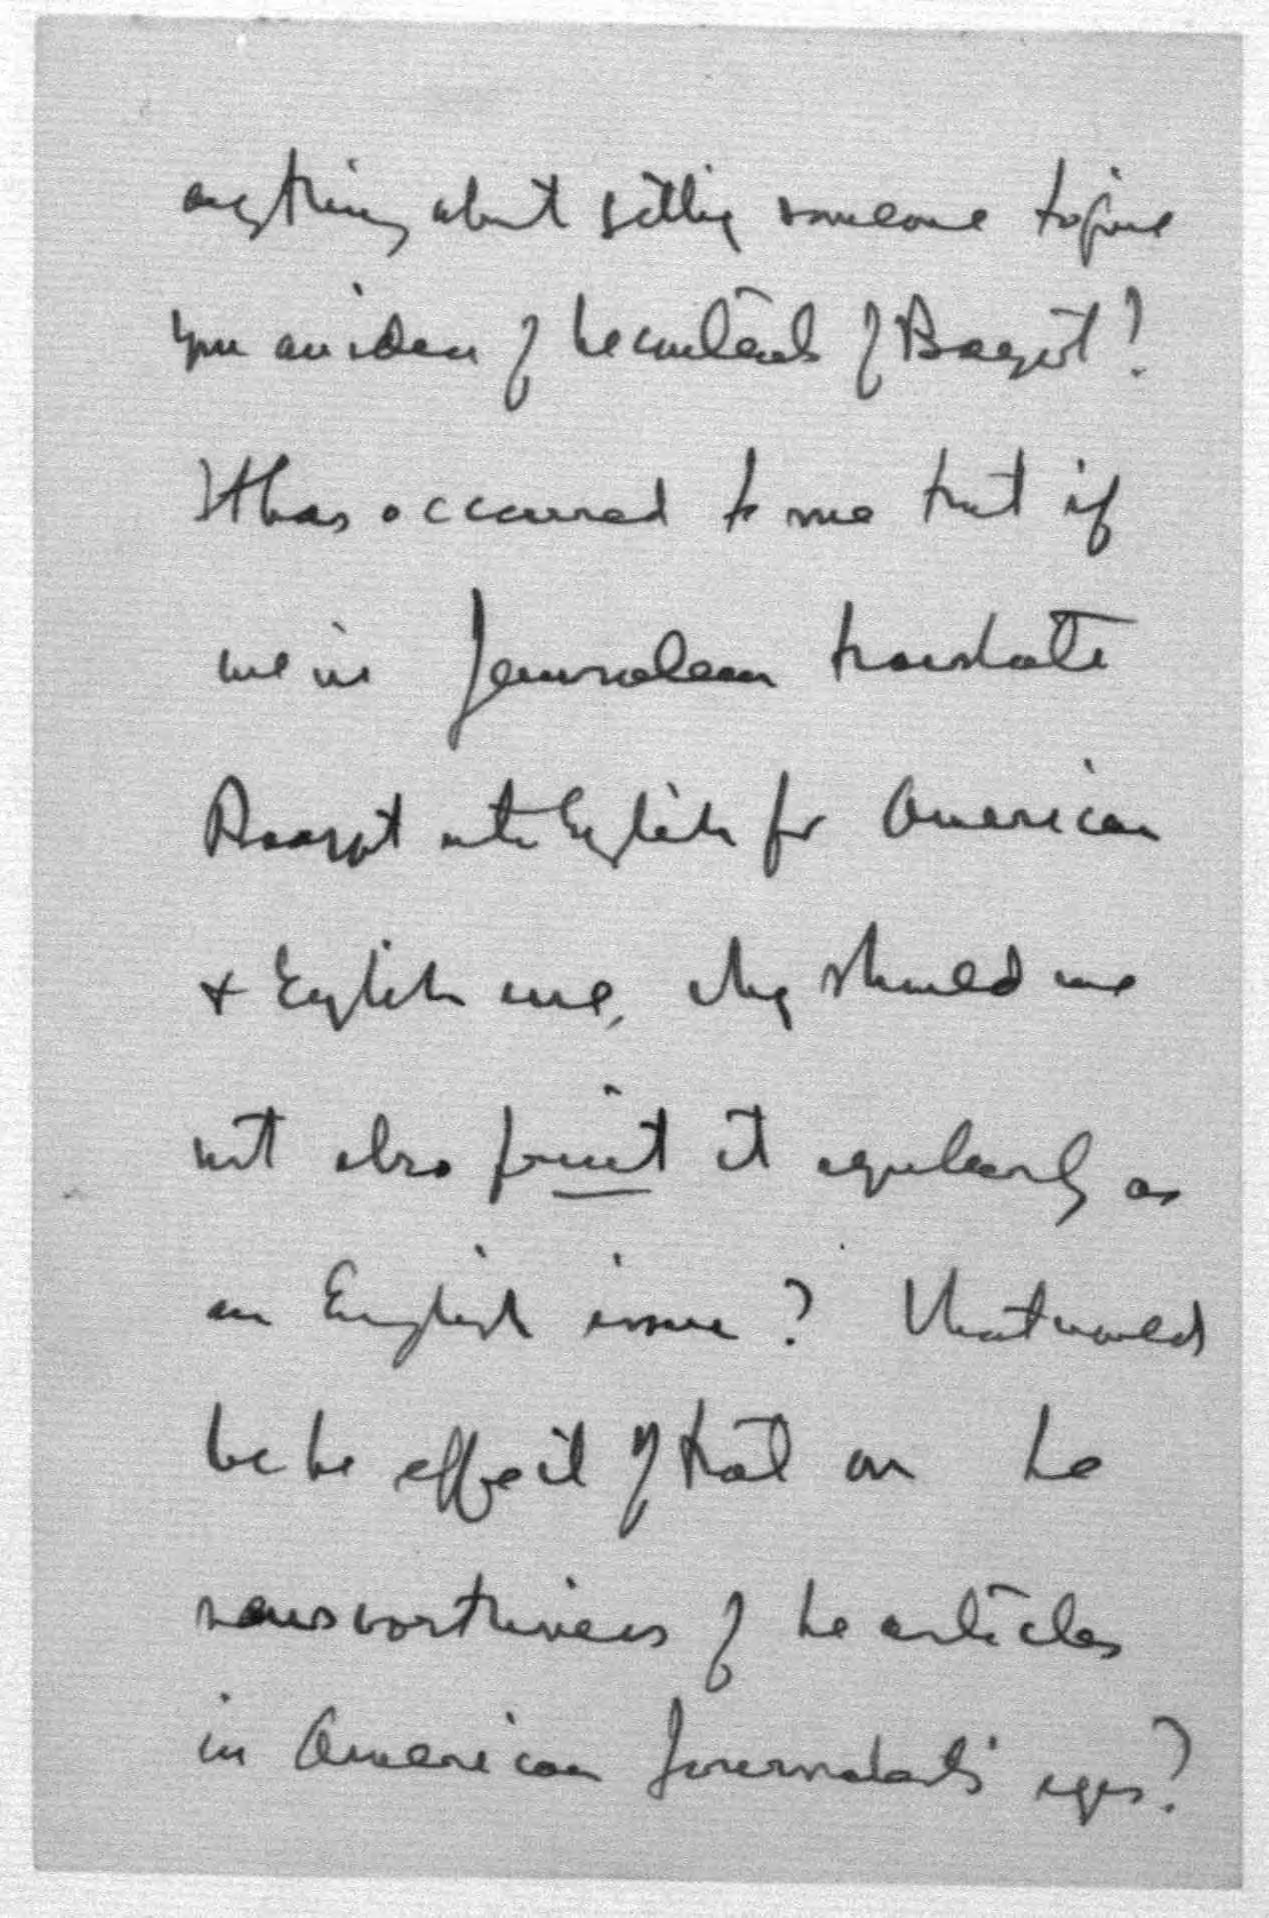 anything about getting someone to give
you an idea of the contents of Baayot?
It has occurred to me that if
we in Jerusalem translate
Baayot into English for American
& English use, why should we
not also print it regularly as
an English issue? What would
be the effect of that on the
newsworthiness of the articles
in American journalists' eyes?